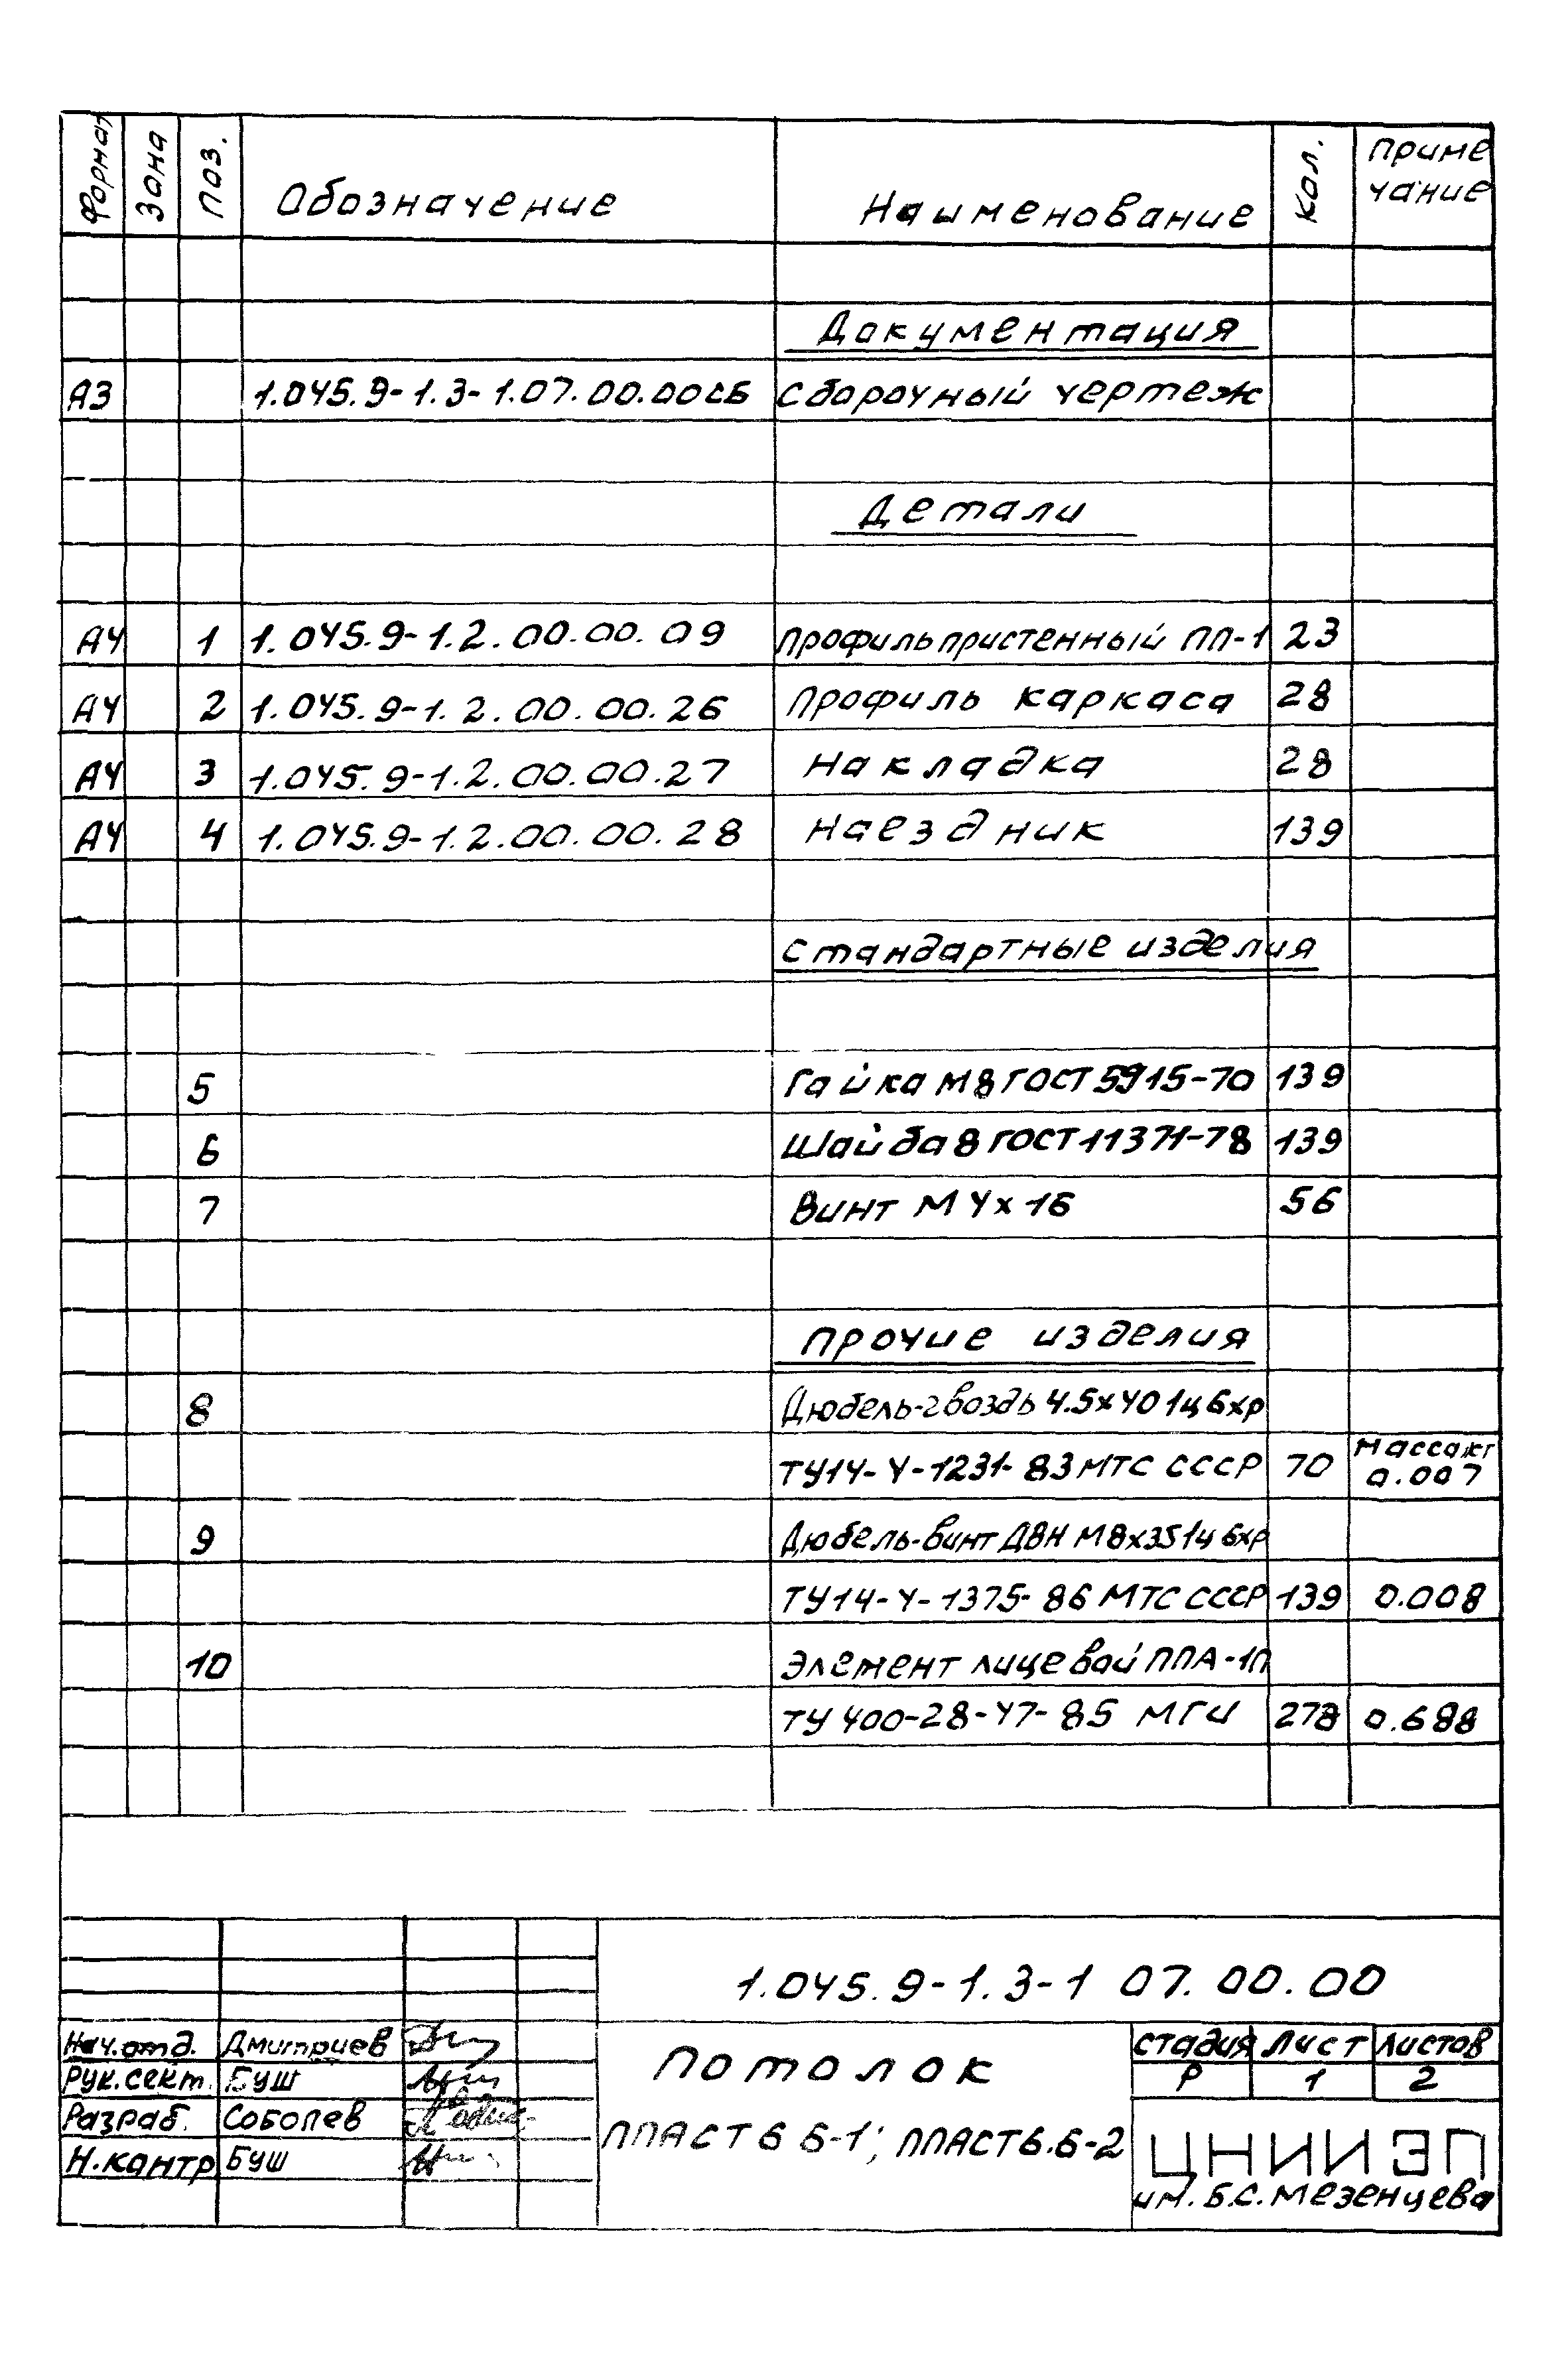 Формат Зона Поз. Обозначение Наименование Кол. Приме
чание
Документация
А3 1.045.9-1.3-1.07.00.00СБ Сборочный чертеж
Детали
А4 1 1.045.9-1.2.00.00.09 Профиль пристенный ПП-1 23
А4 2 1.045.9-1.2.00.00.26 Профиль каркаса 28
А4 3 1.045.9-1.2.00.00.27 Накладка 28
А4 4 1.045.9-1.2.00.00.28 Наездник 139
Стандартные изделия
5 Гайка М8 ГОСТ 5915-70 139
6 Шайба 8 ГОСТ 11371-78 139
7 Винт М4х16 56
Прочие изделия
8 Дюбель-гвоздь 4.5х40 1ц6хр
ТУ14-4-1231-83 МТС СССР 70 Масса кг
0.007
9 Дюбель-винт ДВН М8х35 1ц6хр
ТУ14-4-1375-86 МТС СССР 139 0.008
10 Элемент лицевой ППА-1П
ТУ 400-28-47-85 МГИ 278 0.688
1.045.9-1.3-1 07.00.00
Нач.отд. Дмитриев
Рук.сект. Буш
Разраб. Соболев
Н.контр Буш
Потолок
ППАСТ 6 6-1; ППАСТ6.6-2
Стадия Лист Листов
Р 1 2
ЦНИИЭП
им. Б.С. Мезенцева